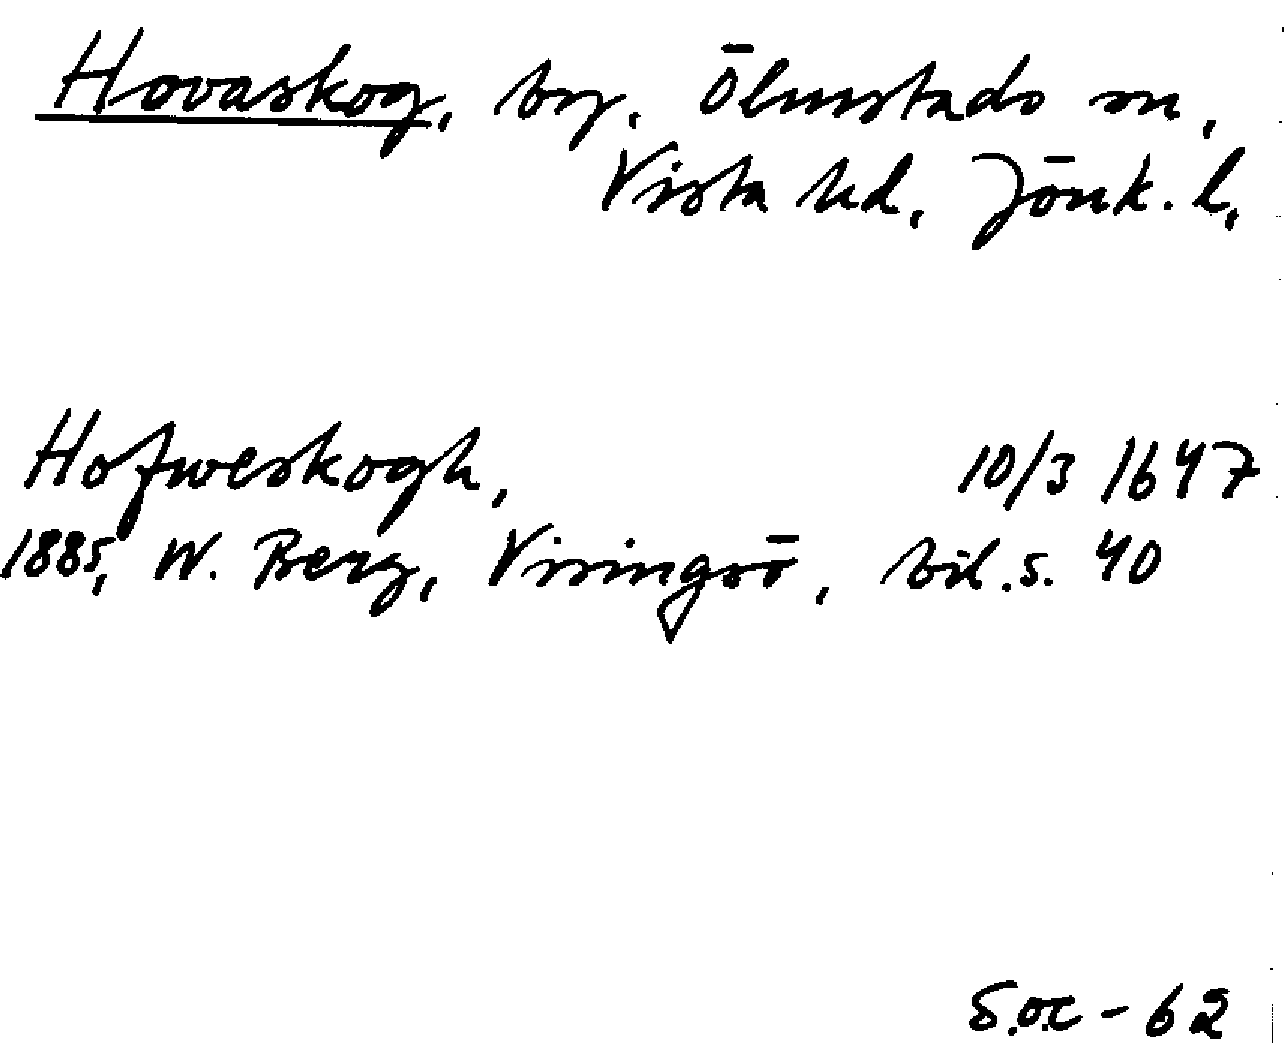 Hovaskog, by. Ölmstads sn,
Vista hd, Jönk. l,
Hofweskogh, 10/3 1647
1885, W. Berg, Visingsö, bil. s. 40
S.o.c - 62